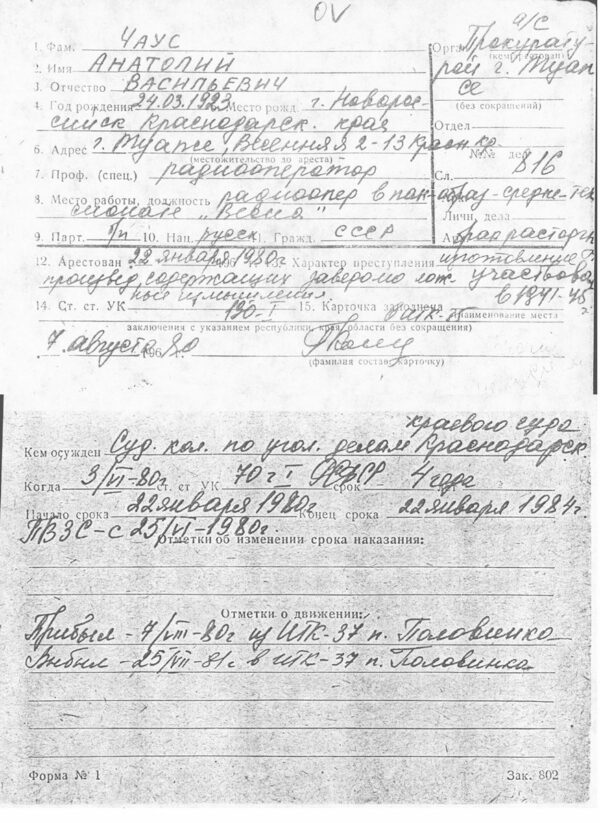 OV
а/с
1. Фам. ЧАУС
Орган Прокурату-
(кем арестован)
2. Имя АНАТОЛИЙ
рой г. Туап
3. Отчество ВАСИЛЬЕВИЧ
се
(без сокращений)
4. Год рождения 24.03.1922 Место рожд. г. Новорос-
сийск Краснодарск. края
Отдел
6. Адрес г. Туапсе, Весенняя 2-13 Красн.кр
(местожительство до ареста)
№№ дел
7. Проф. (спец.) радиооператор
Сл. 816
8. Место работы, должность радиоопер в пан-
образ-средне-тех
сионате „Весна"
Личн. дела
9. Парт. б/п 10. Нац. русск 11. Гражд. СССР
12. Арестован 22 января 1980г. 13. Характер преступления изготовление
произвед. содержащих заведомо лож-
участвовал
ные измышления.
в 1941-45
14. Ст. ст. УК 190-I 15. Карточка заполнена ИТК-
(наименование места
заключения с указанием республики, края, области без сокращения)
7. августа 196 80
(фамилия состав. карточку)
краевого суда
Кем осужден Суд. кол. по угол. делам Краснодарск.
Когда 3/VI-80г. ст. ст УК 70 ч I РСФСР срок 4 года
Начало срока 22 января 1980г Конец срока 22 января 1984г.
ПВЗС-с 25/VI-1980г.
Отметки об изменении срока наказания:
Отметки о движении:
Прибыл - 7/VIII-80г из ИТК-37 п. Половинка
Выбыл - 25/VII-81г. в ИТК-37 п. Половинка
Форма № 1 Зак. 802